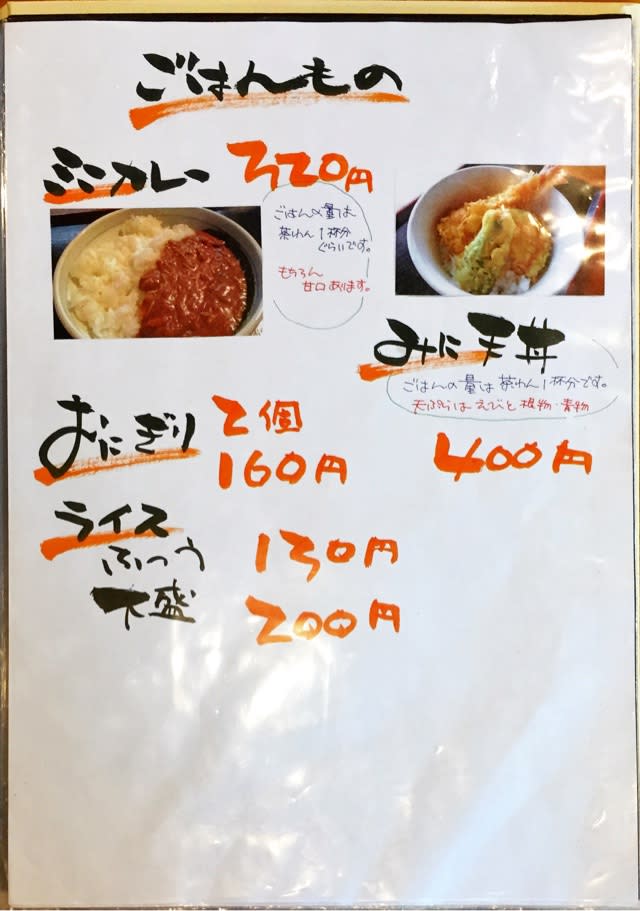 ごはんもの
ミニカレー 320円
ごはんの量は
茶わん1杯分
ぐらいです。
もちろん
甘口あります。
みに天丼
ごはんの量は茶わん1杯分です。
天ぷらはえびと根物・青物
400円
おにぎり 2個
160円
ライス
ふつう 130円
大盛 200円